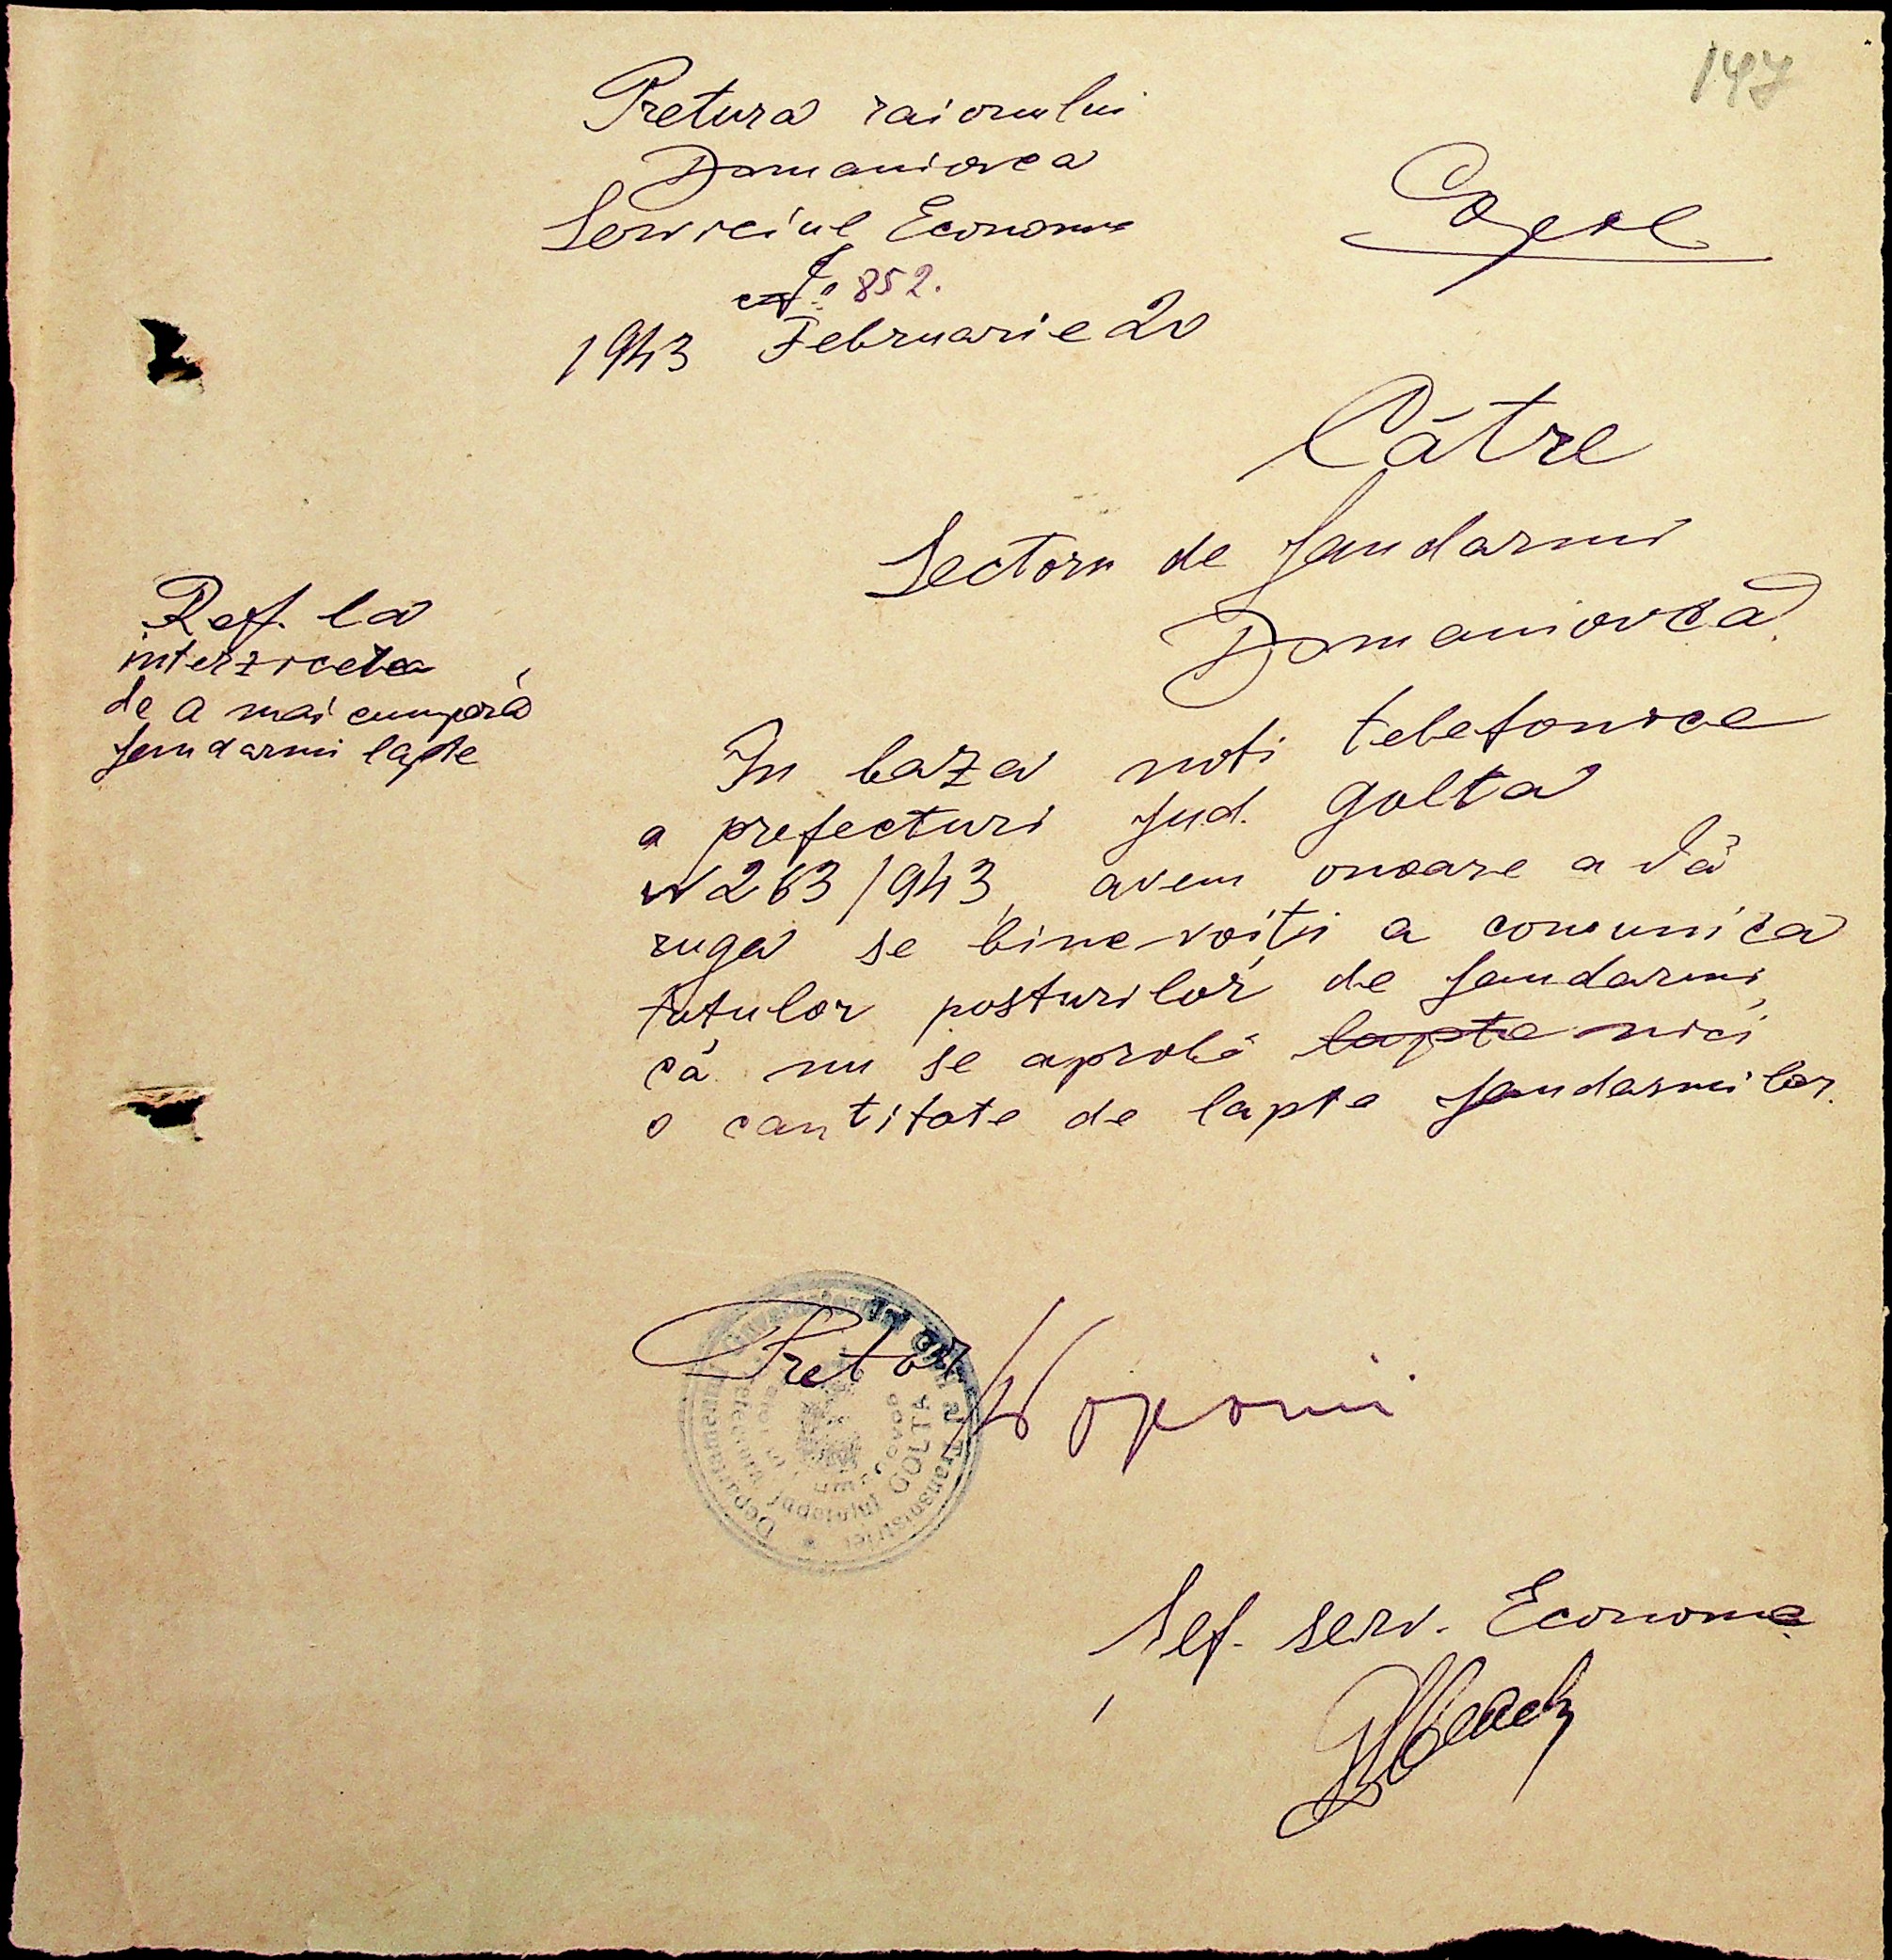 147
Pretura raionului
Domaniovca
Serviciul Econom
No 852.
1943 Februarie 20
Către
Sectoru de Jandarmi
Domaniovca
Ref. la
interzicerea
de a mai cumpăra
jandarmi lapte
In baza noti telefonice
a prefecturi jud. Golta
N 263/943, avem onoare a Vă
ruga se bine voiți a comunica
tutulor posturilor de jandarmi,
că nu se aprobă lapte nici
o cantitate de lapte jandarmilor.
Pretor
GOLTA
Transnistriei
Șef. serv. Econome